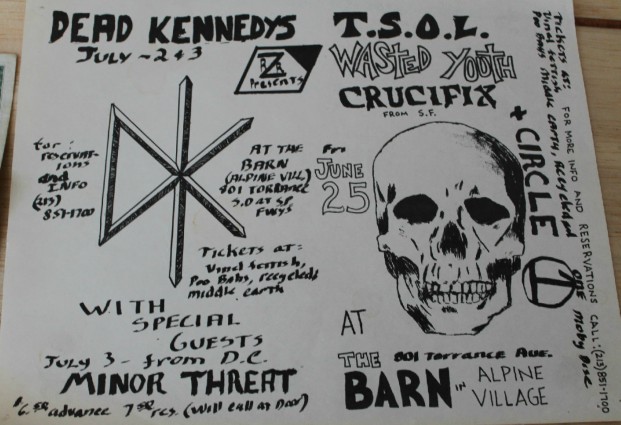 DEAD KENNEDYS
JULY - 2 & 3
Presents
for:
reservat-
ions
and
INFO
(213)
851-1700
AT THE
BARN
(ALPINE VILL)
801 TORRANCE
S.D at SF
FWYS
Tickets at:
Vinyl fettish,
Poo Bahs, recycled,
middle earth
WITH
SPECIAL
GUESTS
July 3 - from D.C.
MINOR THREAT
$6.50 advance 7.50 res. (will call at Door)
T.S.O.L.
WASTED YOUTH
CRUCIFIX
FROM S.F.
+ CIRCLE ONE
Fri
JUNE
25
AT
THE 801 Torrance Ave.
BARN IN ALPINE
VILLAGE
Tickets at:
Vinyl fettish
Poo Bahs Middle Earth, recycled
Moby Disc
FOR MORE INFO AND RESERVATIONS CALL: (213) 851-1700